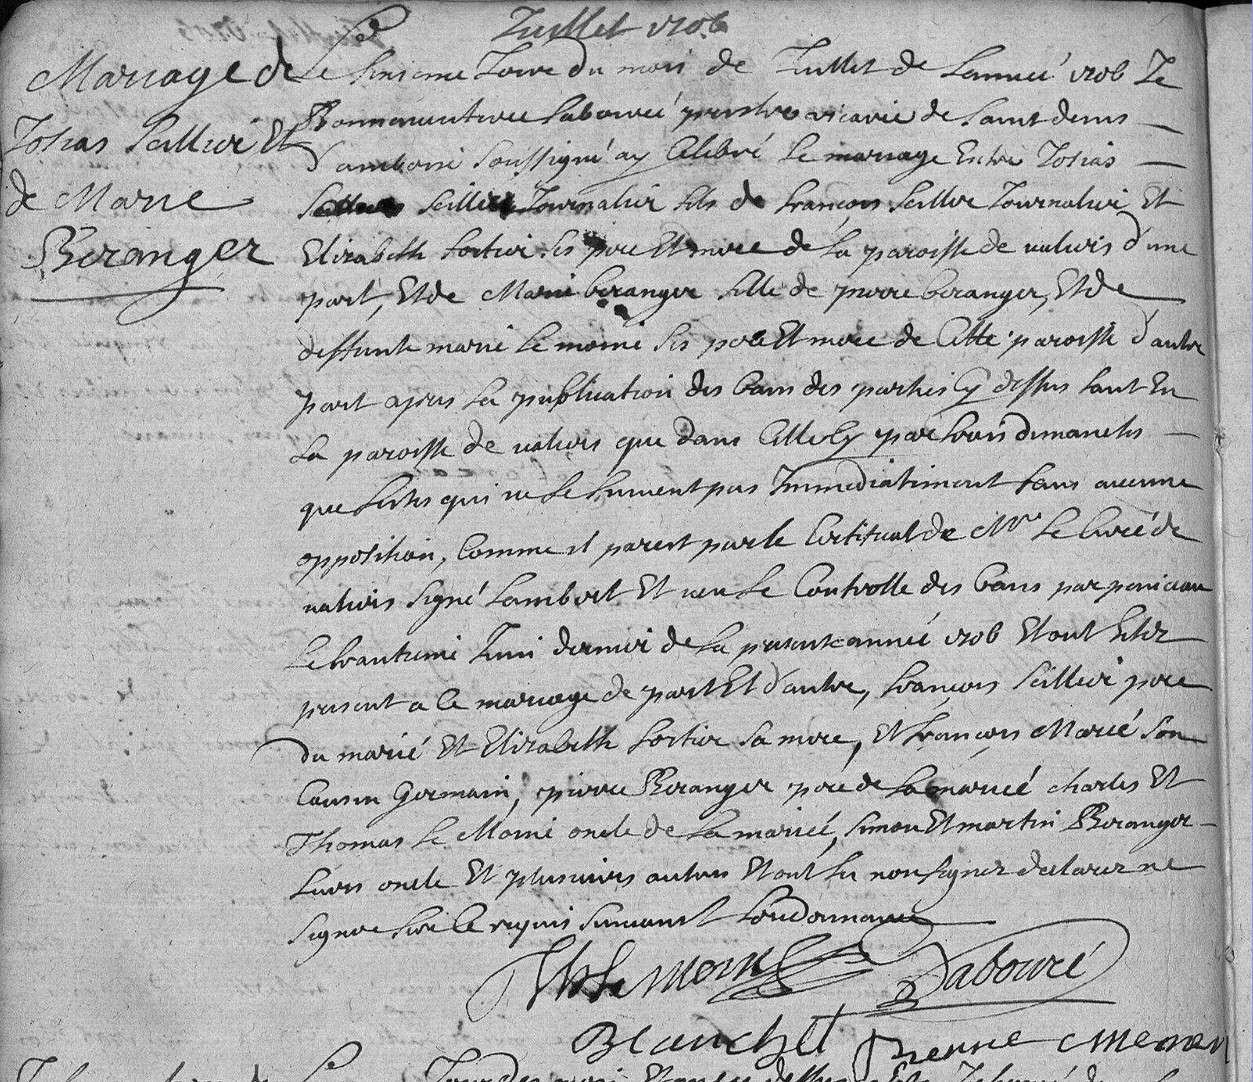 Juillet 1706
Mariage de
Josias Seillier Et
de Marie
Beranger
Le sixieme Jour du mois de Juillet de Lanneé 1706 Je
Bonnaventure Labouré prestre vicaire de saint denis
d'amboise soussigné ay Celebré Le mariage Entre Josias
Seillier Journalier fils de françois Seillier Journalier Et
Elizabeth fortier ses pere Et mere de La paroisse de valieres d'une
part, Et de Marie beranger fille de pierre beranger, Et de
deffunte marie Le moine ses pere Et mere de Cette paroisse d'autre
part apres La publication des bans des parties Cy dessus tant En
La paroisse de valiers que dans Celle Cy par trois dimanches
que festes qui ne se suivent pas Immediatement sans aucune
opposition, Comme il paroit par le Certificat de Mr Le Curé de
valiers signé Lambert Et veu Le Controlle des bans par
Le trantieme Juin dernier de La presente anneé 1706 Et ont Esté
present a Ce mariage de part Et d'autre, françois Seillier pere
du marié Et Elizabeth fortier sa mere, Et françois Marié son
Cousin Germain, pierre Beranger pere de La marieé charles Et
Thomas Le Moine oncle de La marieé, simon Et martin Beranger
Leurs oncle Et plusieurs autres Et ont Les non signez declaré ne
signer de Ce requis suivant Lordonnance
Th Le Moine Labouré
Blanchet Pierre